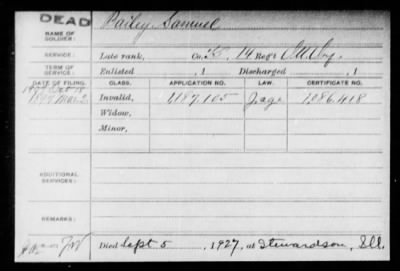 DEAD
Bailey, Samuel
NAME OF SOLDIER:
SERVICE:
Late rank, Co. 14 Reg't
TERM OF SERVICE:
Enlisted , 1 Discharged , 1
DATE OF FILING. CLASS. APPLICATION NO. CERTIFICATE NO.
Oct 18
1897 Mar. 2 Invalid, 1187.105 1,086.418
Widow,
Minor,
ADDITIONAL SERVICES:
REMARKS:
Died Sept 5, 1927, at Stewardson, Ill.